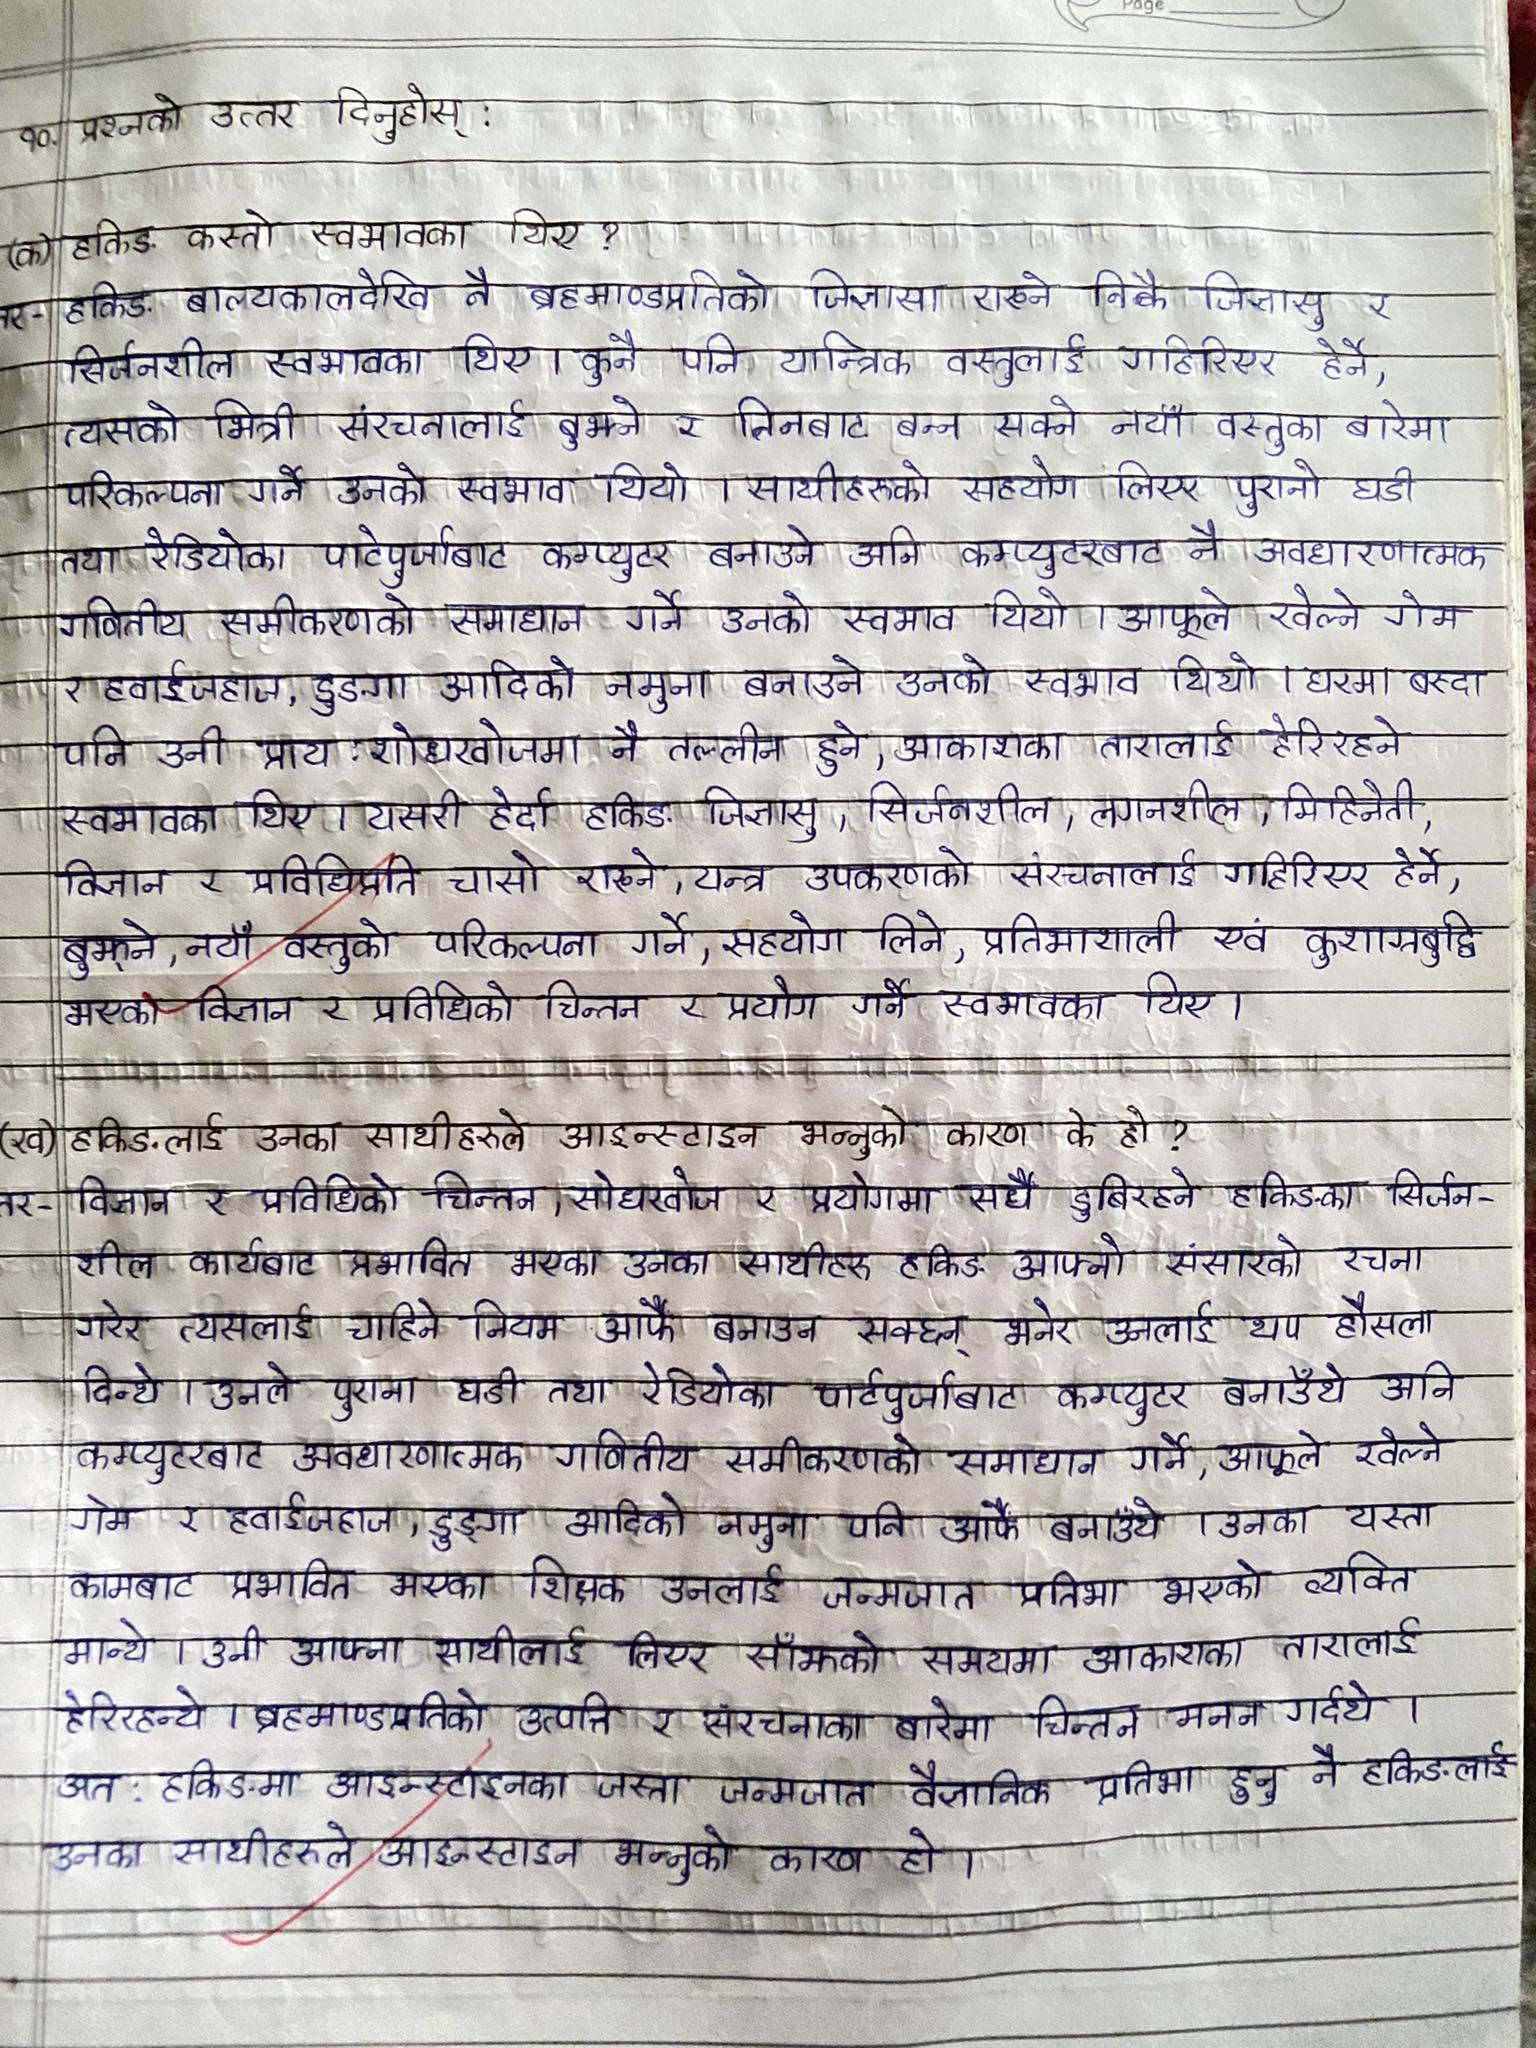 Page
१०. प्रश्नको उत्तर दिनुहोस् :
(क) हकिङ कस्तो स्वभावका थिए ?
तर- हकिङ बाल्यकालदेखि नै ब्रहमाण्डप्रतिको जिज्ञासा राख्ने निकै जिज्ञासु र
सिर्जनशील स्वभावका थिए । कुनै पनि यान्त्रिक वस्तुलाई गहिरिएर हेर्ने,
त्यसको भित्री संरचनालाई बुझ्ने र तिनबाट बन्न सक्ने नयाँ वस्तुका बारेमा
परिकल्पना गर्ने उनको स्वभाव थियो । साथीहरूको सहयोग लिएर पुरानो घडी
तथा रेडियोका पाटेपुर्जाबाट कम्प्युटर बनाउने अनि कम्प्युटरबाट नै अवधारणात्मक
गणितीय समीकरणको समाधान गर्ने उनको स्वभाव थियो । आफूले खेल्ने गेम
र हवाईजहाज, डुङगा आदिको नमुना बनाउने उनको स्वभाव थियो । घरमा बस्दा
पनि उनी प्राय : शोधखोजमा नै तल्लीन हुने, आकाशका तारालाई हेरिरहने
स्वभावका थिए । यसरी हेर्दा हकिङ जिज्ञासु, सिर्जनशील, लगनशील, मिहिनेती,
विज्ञान र प्रविधिप्रति चासो राख्ने, यन्त्र उपकरणको संरचनालाई गहिरिएर हेर्ने,
बुझ्ने, नयाँ वस्तुको परिकल्पना गर्ने, सहयोग लिने, प्रतिभाशाली एवं कुशाग्रबुद्धि
भएको विज्ञान र प्रविधिको चिन्तन र प्रयोग गर्ने स्वभावका थिए ।
(ख) हकिङलाई उनका साथीहरूले आइन्स्टाइन भन्नुको कारण के हो ?
तर- विज्ञान र प्रविधिको चिन्तन, सोधखोज र प्रयोगमा सधैँ डुबिरहने हकिङका सिर्जन-
शील कार्यबाट प्रभावित भएका उनका साथीहरू हकिङ आफ्नो संसारको रचना
गरेर त्यसलाई चाहिने नियम आफै बनाउन सक्छन् भनेर उनलाई थप हौसला
दिन्थे । उनले पुराना घडी तथा रेडियोका पार्टपुर्जाबाट कम्प्युटर बनाउँथे अनि
कम्प्युटरबाट अवधारणात्मक गणितीय समीकरणको समाधान गर्ने, आफूले खेल्ने
गेम र हवाईजहाज, डुङ्गा आदिको नमुना पनि आफै बनाउँथे । उनका यस्ता
कामबाट प्रभावित भएका शिक्षक उनलाई जन्मजात प्रतिभा भएको व्यक्ति
मान्थे । उनी आफ्ना साथीलाई लिएर साँझको समयमा आकाशका तारालाई
हेरिरहन्थे । ब्रहमाण्डप्रतिको उत्पत्ति र संरचनाका बारेमा चिन्तन मनन गर्दथे ।
अत : हकिङमा आइन्स्टाइनका जस्ता जन्मजात वैज्ञानिक प्रतिभा हुनु नै हकिङलाई
उनका साथीहरूले आइन्स्टाइन भन्नुको कारण हो ।